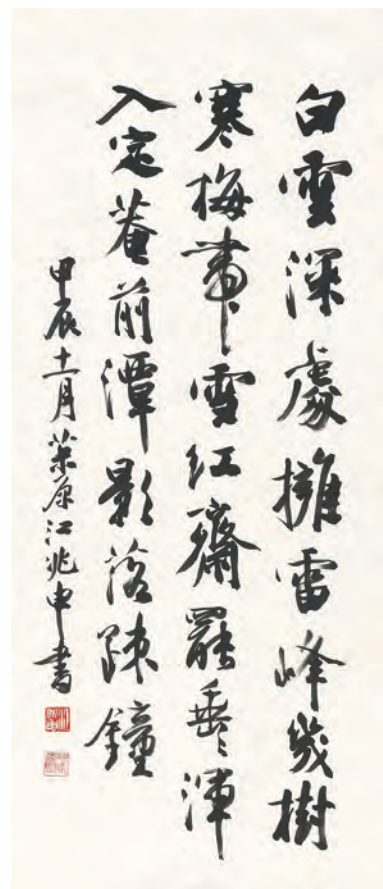 白雲深處擁雷峰幾樹
寒梅帶雪紅齋罷垂〻渾
入定菴前潭影落踈鐘
甲辰十一月茮原江兆申書